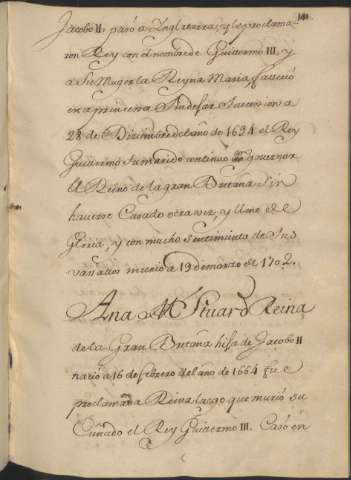 Jacobo II. pasó a Inglaterra, y le proclama-
ron Rey con el nombre de Guillermo III. y
a Su Muger la Reyna Maria, falleció
esta princesa Sin dejar Sucesion a
28 de Diziembre del año de 1694 el Rey
Guillermo Su marido continuo governar
el Reino de la gran Bretaña Sin
haverse Casado otra vez, y lleno de
Gloria, y con mucho Sentimiento de Sus
vasallos murio a 19 de marzo de 1702.
Ana Stuard Reina
de la Gran Bretaña hija de Jacobo II
nacio a 16 de febrero del año de 1664 fue
proclamada Reina luego que murió su
Cuñado el Rey Guillermo III. Casó en